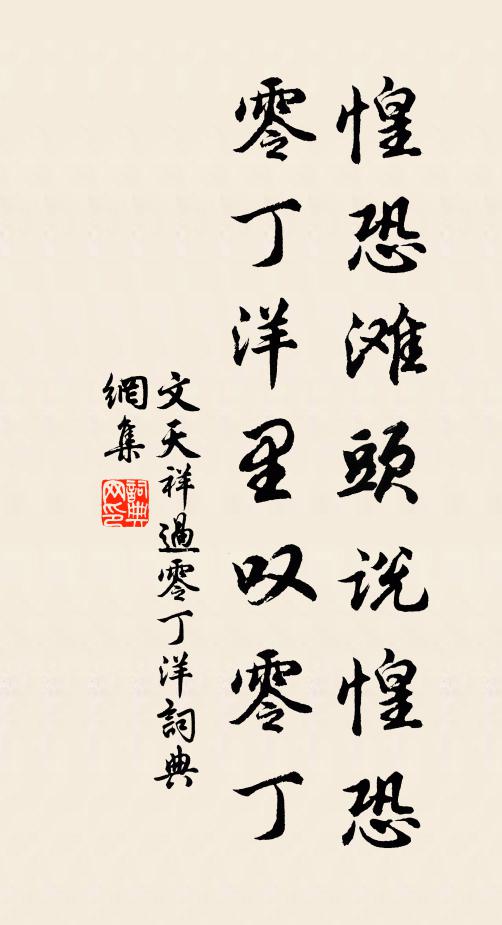 惶恐滩頭说惶恐
零丁洋里叹零丁
文天祥過零丁洋詞典
網集
詞典
网印